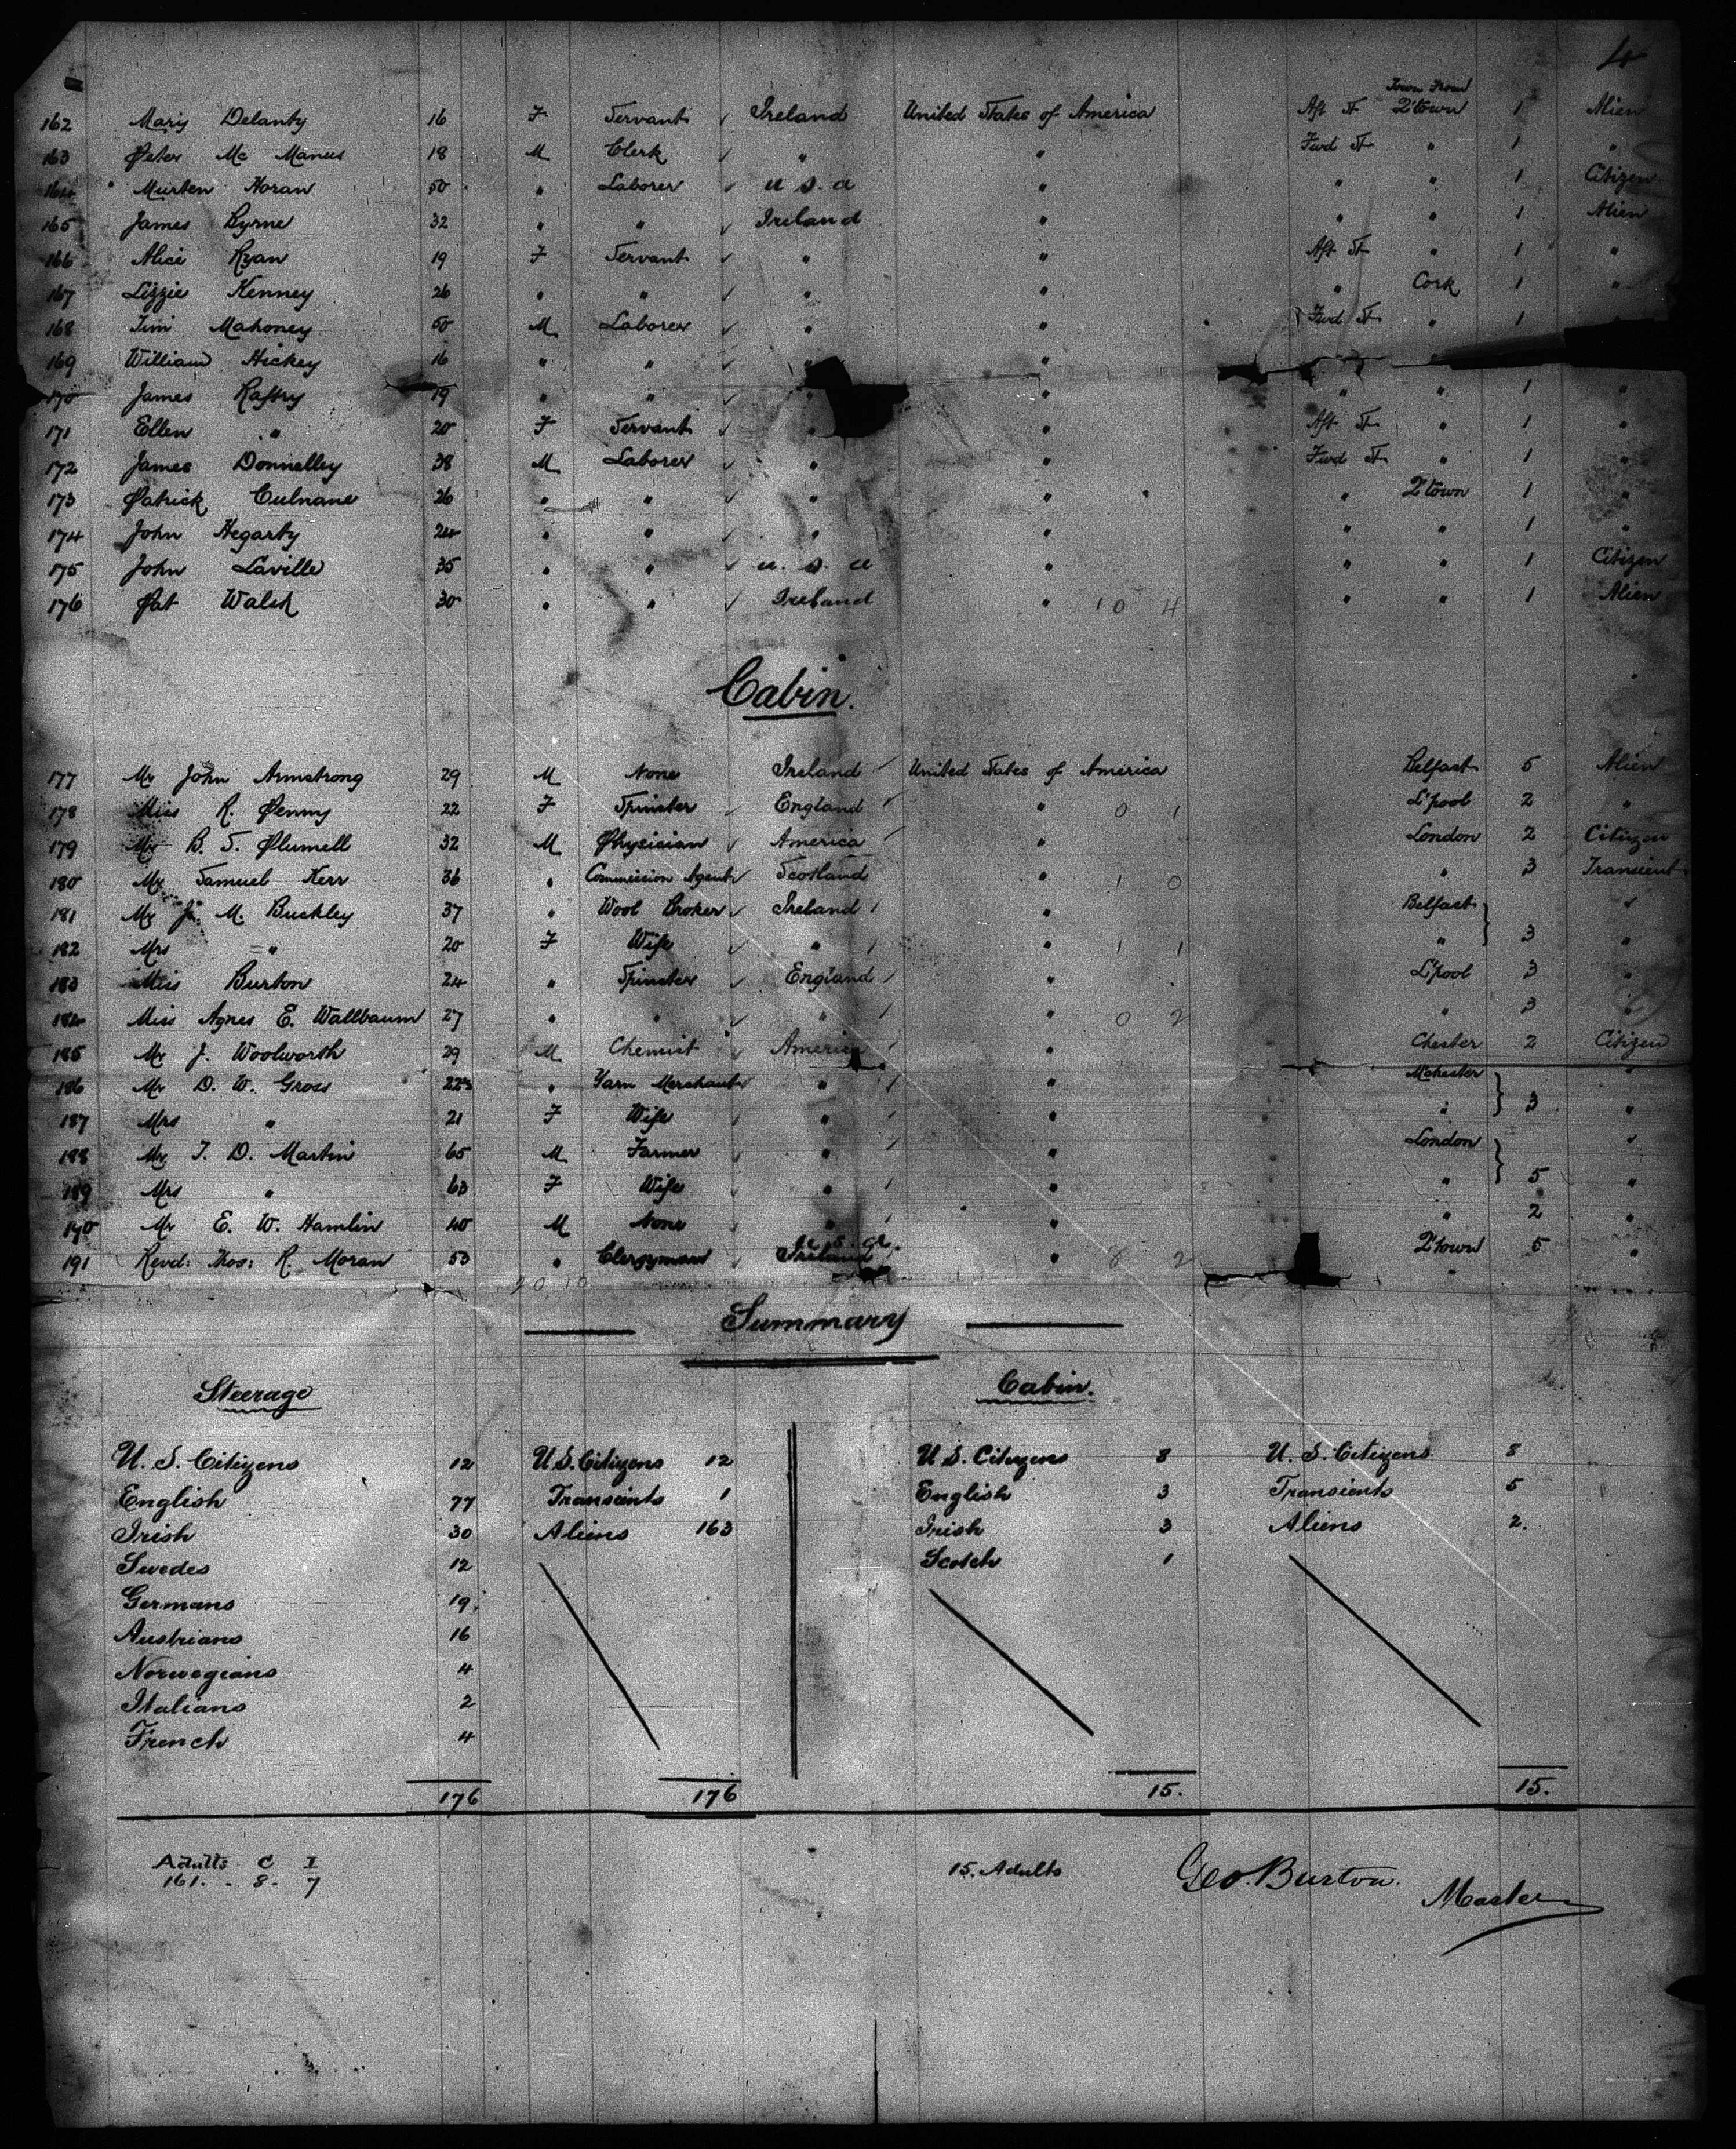 4
Town From
162 Mary Delanty 16 F Servant ✓ Ireland United States of America Aft St Q'town 1 Alien
163 Peter Mc Manus 18 M Clerk ✓ " " Fwd St " 1 "
164 Murten Horan 50 " Laborer ✓ U S. A " " " 1 Citizen
165 James Byrne 32 " " ✓ Ireland " " " 1 Alien
166 Alice Ryan 19 F Servant ✓ " " Aft St " 1 "
167 Lizzie Kenney 26 " " ✓ " " " Cork 1 "
168 Tim Mahoney 50 M Laborer ✓ " " Fwd St " 1
169 William Hickey 16 " " ✓ " " "
170 James Raftry 19 " " ✓ " " " " 1 "
171 Ellen " 20 F Servant ✓ " " Aft St " 1 "
172 James Donnelley 38 M Laborer ✓ " " Fwd St " 1 "
173 Patrick Culnane 26 " " ✓ " " " Q'town 1 "
174 John Hegarty 24 " " " " " " 1 "
175 John Laville 35 " " ✓ U. S. A " " " 1 Citizen
176 Pat Walsh 30 " " ✓ Ireland " 10 4 " " 1 Alien
Cabin.
177 Mr John Armstrong 29 M None Ireland United States of America Belfast 5 Alien
178 Miss R. Penny 22 F Spinster ✓ England " 0 1 L'pool 2 "
179 Mr B. S. Plumell 32 M Physician ✓ America " London 2 Citizen
180 Mr Samuel Kerr 36 " Commission Agent ✓ Scotland " 1 0 " 3 Transient
181 Mr J. M. Buckley 37 " Wool Broker ✓ Ireland " Belfast "
182 Mrs " 20 F Wife ✓ " " 1 1 " 3 "
183 Miss Burton 24 " Spinster ✓ England " L'pool 3 "
184 Miss Agnes E. Wallbaum 27 " " ✓ " " 0 2 " 3 "
185 Mr J. Woolworth 29 M Chemist ✓ America " Chester 2 Citizen
186 Mr D. W. Gross 22 " Yarn Merchant ✓ " " M'chester "
187 Mrs " 21 F Wife " " " 3 "
188 Mr T. D. Martin 65 M Farmer ✓ " " London "
189 Mrs " 63 F Wife ✓ " " " 5 "
190 Mr E. W. Hamlin 40 M None " " " 2 "
U. S. A.
191 Revd: Thos: R. Moran 53 " Clergyman ✓ Ireland " 8 2 Q'town 5 "
20 10
Summary
Steerage Cabin.
U. S. Citizens 12 U S. Citizens 12 U S. Citizens 8 U. S. Citizens 8
English 77 Transients 1 English 3 Transients 5
Irish 30 Aliens 163 Irish 3 Aliens 2.
Swedes 12 Scotch 1
Germans 19
Austrians 16
Norwegians 4
Italians 2
French 4
176 176 15. 15.
Adults C I
161. - 8. 7
15. Adults Geo. Burton.
Master